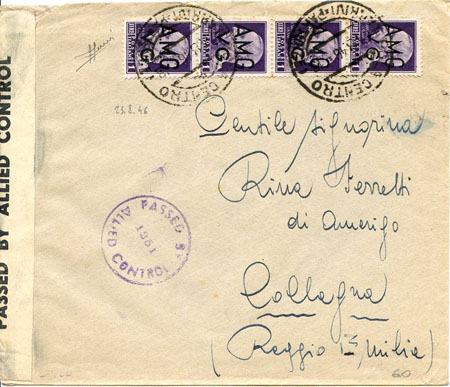 PASSED BY ALLIED CONTROL
AMG VG AMG VG AMG VG AMG VG
CENTRO CENTRO
23.8.46
Gentile Signorina
Rina Ferretti
di Amerigo
Collagna
(Reggio Emilia)
PASSED BY
1361
ALLIED CONTROL
60